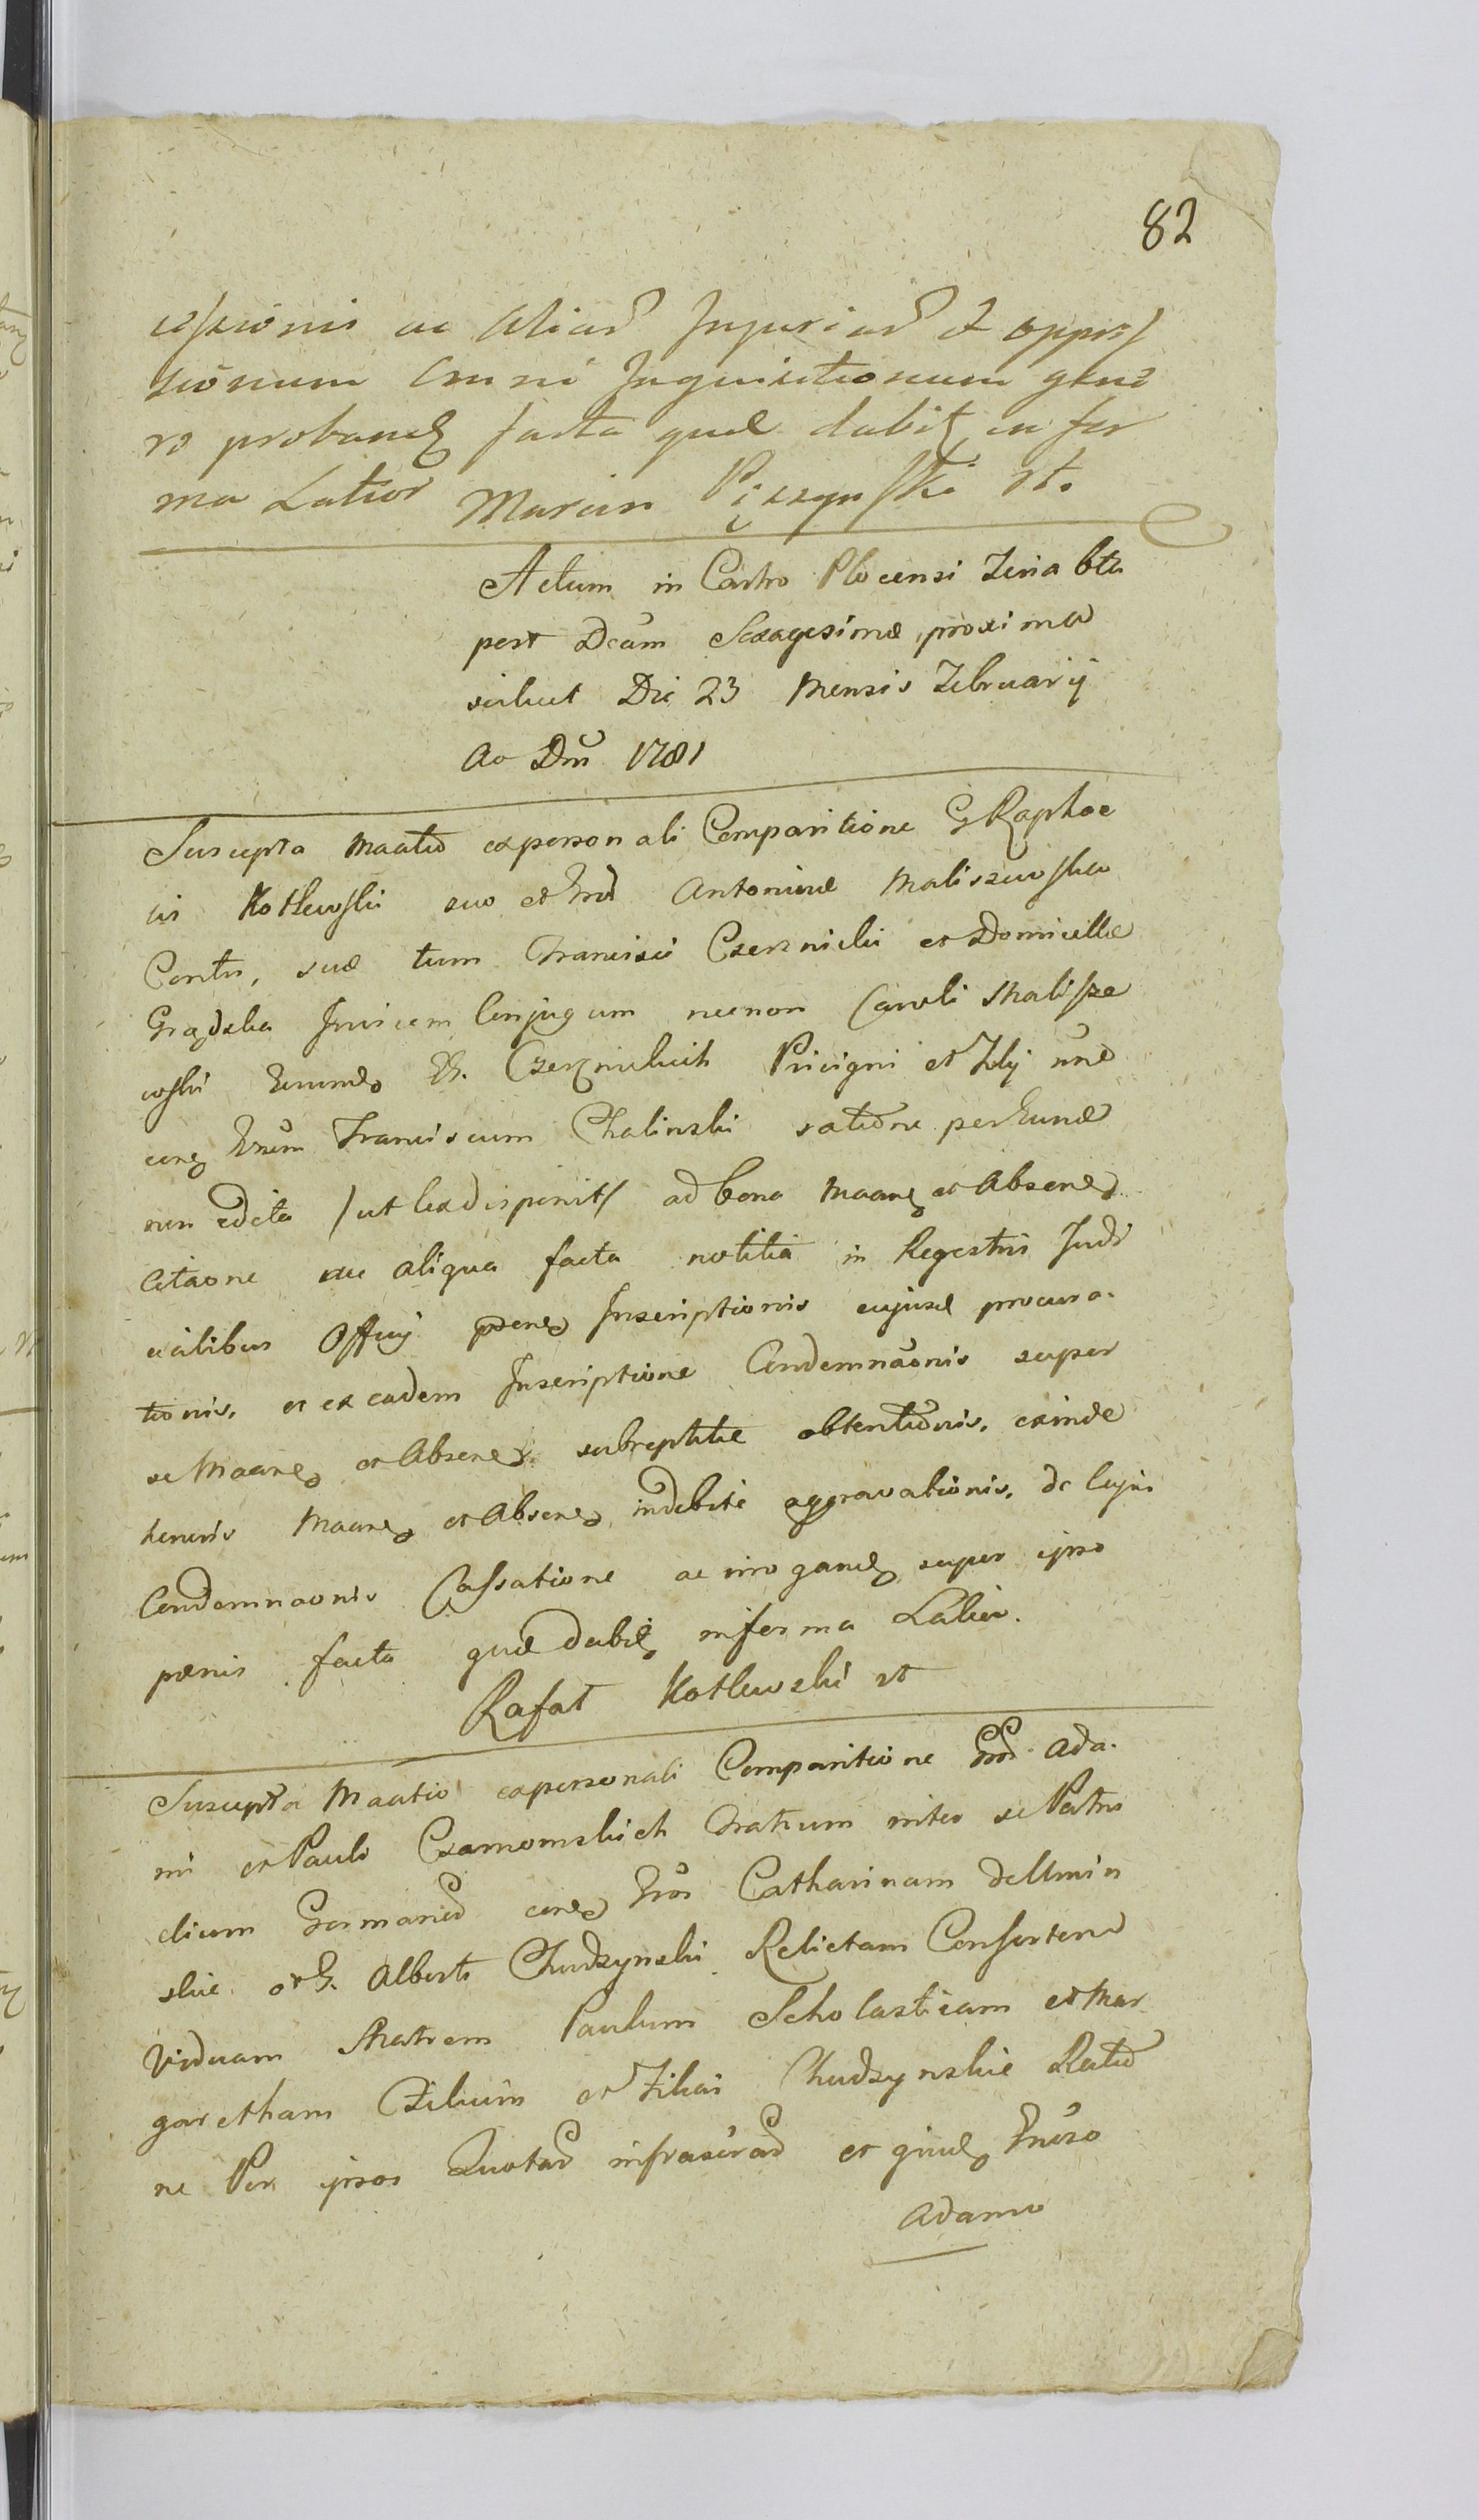 82
cessionis ac Aliar Injuriar et oppres
sionum Omni Inquisitionum gene
re proband facta quæ dabit in for
ma Latior Marcin Pięczynski mp.
Actum in Castro Plocensi Feria 6ta
post Dcam Sexagesimæ, proxima
scilicet Die 23 Mensis Februarij
Ao Dni 1781
Suscepta Maatio ex personali Comparitione G Raphae
lis Kotlewski suo et Antoninæ Maliszewska
Contr, suæ tum Francisci Czernicki et Domicellæ
Grądzka Invicem Conjugum necnon Caroli Malisze
wski Czernickich Privigni et Filij une
cone Franciscum Chalinski ratione per Eund
non edita /ut lex disponit/ ad bona Maane et Absene
Citaone nec aliqua facta notitia in Regestris Judi
cialibus Officij psene Inscriptionis cujusd procura-
tionis, et ex eadem Inscriptione Condemnaonis super
se Maane et Absene subreptitie obtentionis, exinde
honoris Maane et Absene indebite aggravationis, de Cujus
Condemnaonis Cassatione ac irrogand super ipso
pœnis facta quæ dabit in forma Latior.
Rafał Kotlewski mp
Suscepta Maatio ex personali Comparitione Ada-
mi et Pauli Czarnomskich Fratrum inter se Patru
elium Germanor cone Catharinam Dellmin
skie et G. Alberti Chudzynski Relictam Consortem
Viduam Matrem Paulum Scholasticam et Mar
garetham Filium et Filias Chudzynskie Ratio
ne Per ipsos Quotar infrascrar et quid
Adamo